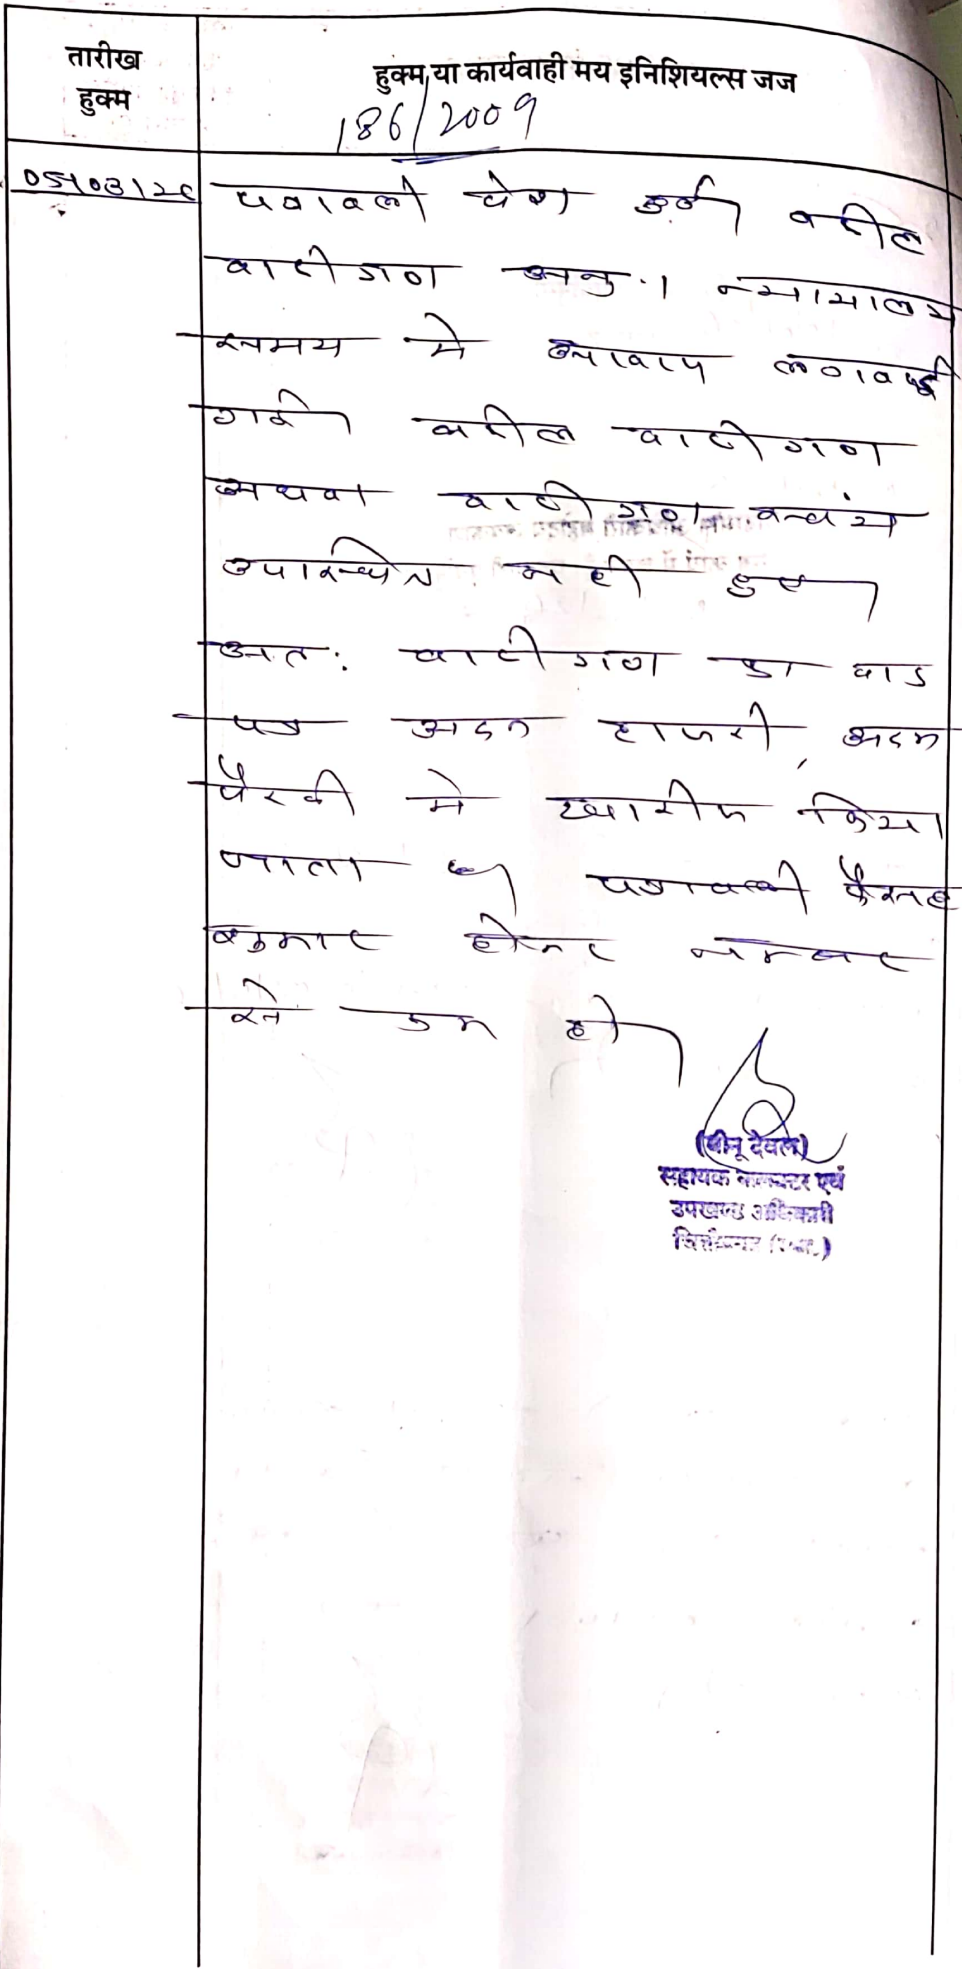 तारीख
हुक्म
हुक्म या कार्यवाही मय इनिशियल्स जज
186/2009
05/03/26
पत्रावली पेश हुई। वकील
वादीगण अनु.। न्यायालय
समय मे आवाज लगवाई
गई। वकील वादीगण
अथवा वादीगण स्वंय
उपस्थित नही हुए।
अत: वादीगण का वाद
पत्र अदम हाजरी, अदम
पैरवी मे खारीज किया
जाता है। पत्रावली फैसल
शुमार होकर नम्बर
से कम हो।
(बीनू देवल)
सहायक कलक्टर एवं
उपखण्ड अधिकारी